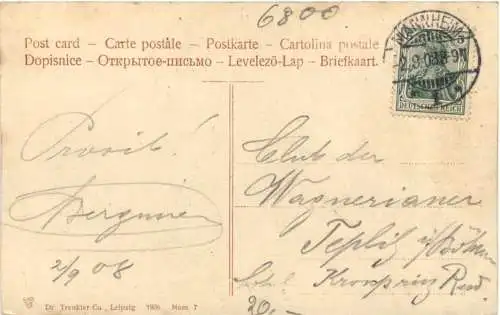 6800
Post card – Carte postale – Postkarte – Cartolina postale
Dopisnice – Открытое-письмо – Levelező-Lap – Briefkaart.
MANNHEIM
DEUTSCHES REICH
Prosit!
2/9 08
Club der
Wagnerianer
Teplitz i/Böhmen
Hotel Kronprinz Rud.
20.-
Dr Trenkler Co., Leipzig 1906 Mum 7